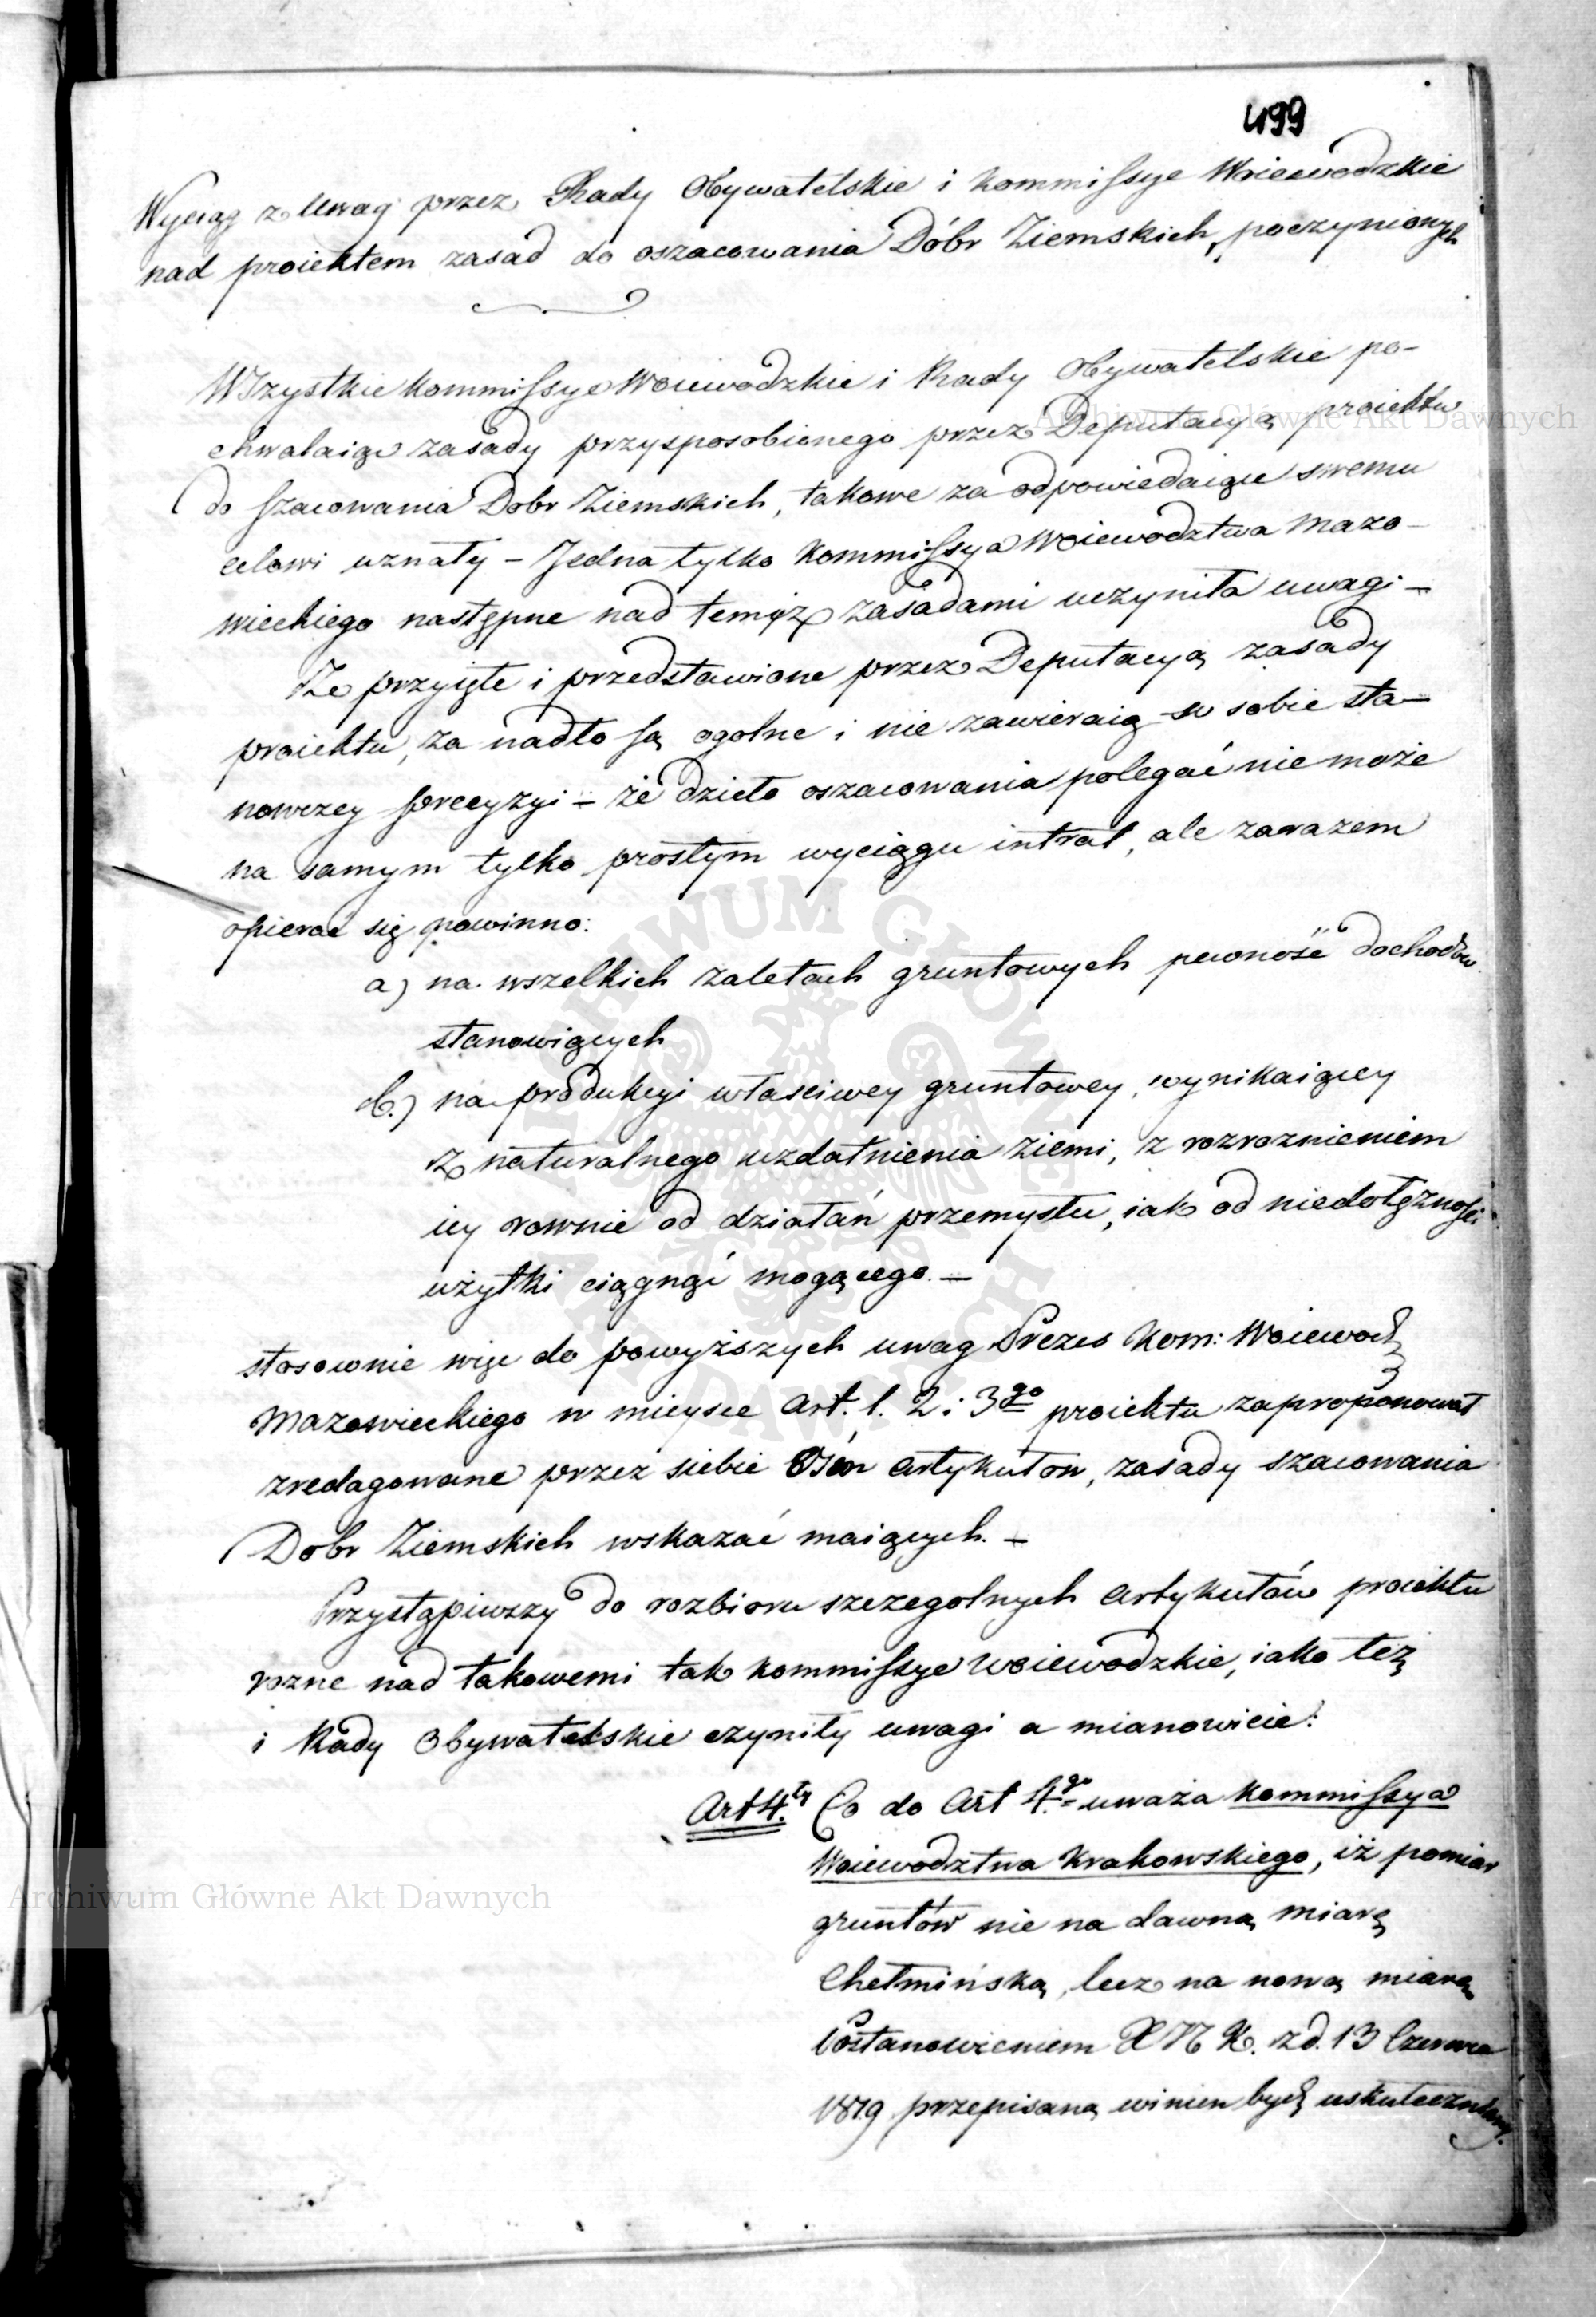 499
Wyciąg z Uwag przez Rady Obywatelskie i Kommissye Woiewodzkie
nad proiektem zasad do oszacowania Dóbr Ziemskich, poczynionych
Wszystkie Kommissye Woiewodzkie i Rady Obywatelskie po-
chwalaiąc zasady przysposobionego przez Deputacyą proiektu
do szacowania Dobr Ziemskich, takowe za odpowiedaiące swemu
celowi uznały – Jedna tylko Kommissya Woiewodztwa Mazo-
wieckiego następne nad temiż zasadami uczyniła uwagi –
Że przyięte i przedstawione przez Deputacyą zasady
proiektu, za nadto są ogolne i nie zawieraią w sobie sta-
nowczey precyzyi – że dzieło oszacowania polegać nie może
na samym tylko prostym wyciągu intrat, ale zarazem
opierać się powinno:
a) na wszelkich zaletach gruntowych pewność dochodów
stanowiących
b.) na produkcyi właściwey gruntowey, wynikaiącey
z naturalnego uzdatnienia ziemi, z rozroznieniem
iey rownie od działań przemysłu, iak od niedołęznośći
użytki ciągnąć mogącego. –
stosownie więc do powyższych uwag Prezes Kom: Woiewodz
Mazowieckiego w mieysce Art. 1. 2 i 3go proiektu zaproponował
zredagowane przez siebie Ośm artykułow, zasady szacowania
Dobr Ziemskich wskazać maiących. –
Przystąpiwszy do rozbioru szczegolnych artykułów proiektu
rozne nad takowemi tak Kommissye Woiewodzkie, iako też
i Rady Obywatelskie czyniły uwagi a mianowicie:
Art 4.ty Co do Art 4.go uważa Kommissya
Woiewodztwa Krakowskiego, iż pomiar
gruntów nie na dawną miarę
Chełmińską, lecz na nową miarę
Postanowieniem X N K. z d. 13 Czerwca
1819 przepisaną winien być uskuteczniony.
Archiwum Główne Akt Dawnych
Archiwum Główne Akt Dawnych
ARCHIWUM GŁÓWNE
AKT DAWNYCH